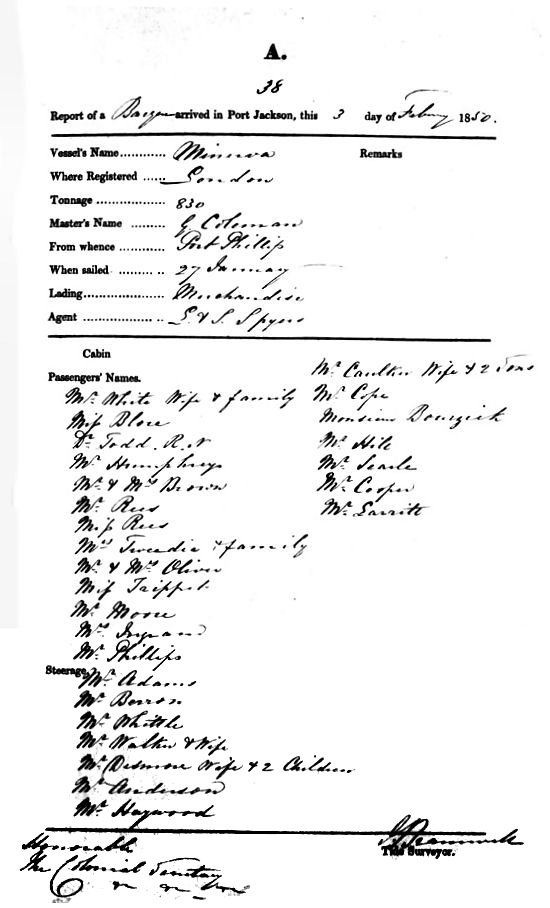 A.
38
Report of a Barque arrived in Port Jackson, this 3 day of Febuy 1850.
Vessel's Name............ Minerva
Remarks
Where Registered ...... London
Tonnage .................. 830
Master's Name ......... G Coleman
From whence ............ Port Phillip
When sailed ......... .. 27 January
Lading..................... Merchandise
Agent .................. .. L & S. Spyer
Cabin
Passengers' Names.
Mr. White Wife & family
Miss Blore
Dr. Todd. R.N
Mr Humphreys
Mr. & Mrs Brown
Mr. Rees
Miss Rees
Mrs Tweedie & family
Mr. & Mrs Oliver
Miss Trippet
Mr. Moore
Mrs.
Mr. Phillips
Steerage
Mr. Adams
Mr. Berron
Mr. Whittle
Mr. Walker & Wife
Mr. Desmore Wife & 2 Children
Mr. Anderson
Mr. Haywood
Mr. Caulker Wife & 2 Sons
Mr. Cope
Monsieur
Mr. Hill
Mr. Searle
Mr. Cooper
Mr.
Tide Surveyor.
Honorable
The Colonial Secretary